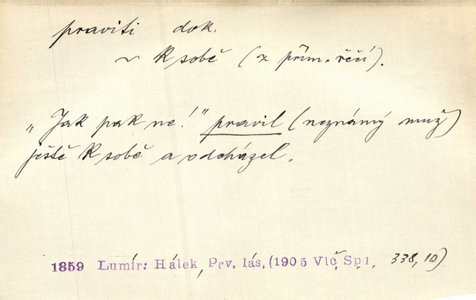 praviti dok.
~ k sobě (x přím. řečí).
„Jak pak ne!" pravil (neznámý muž)
ještě k sobě a odcházel.
1859 Lumír: Hálek, Prv. lás, (1905 Vlč, Sp 1, 338,10)